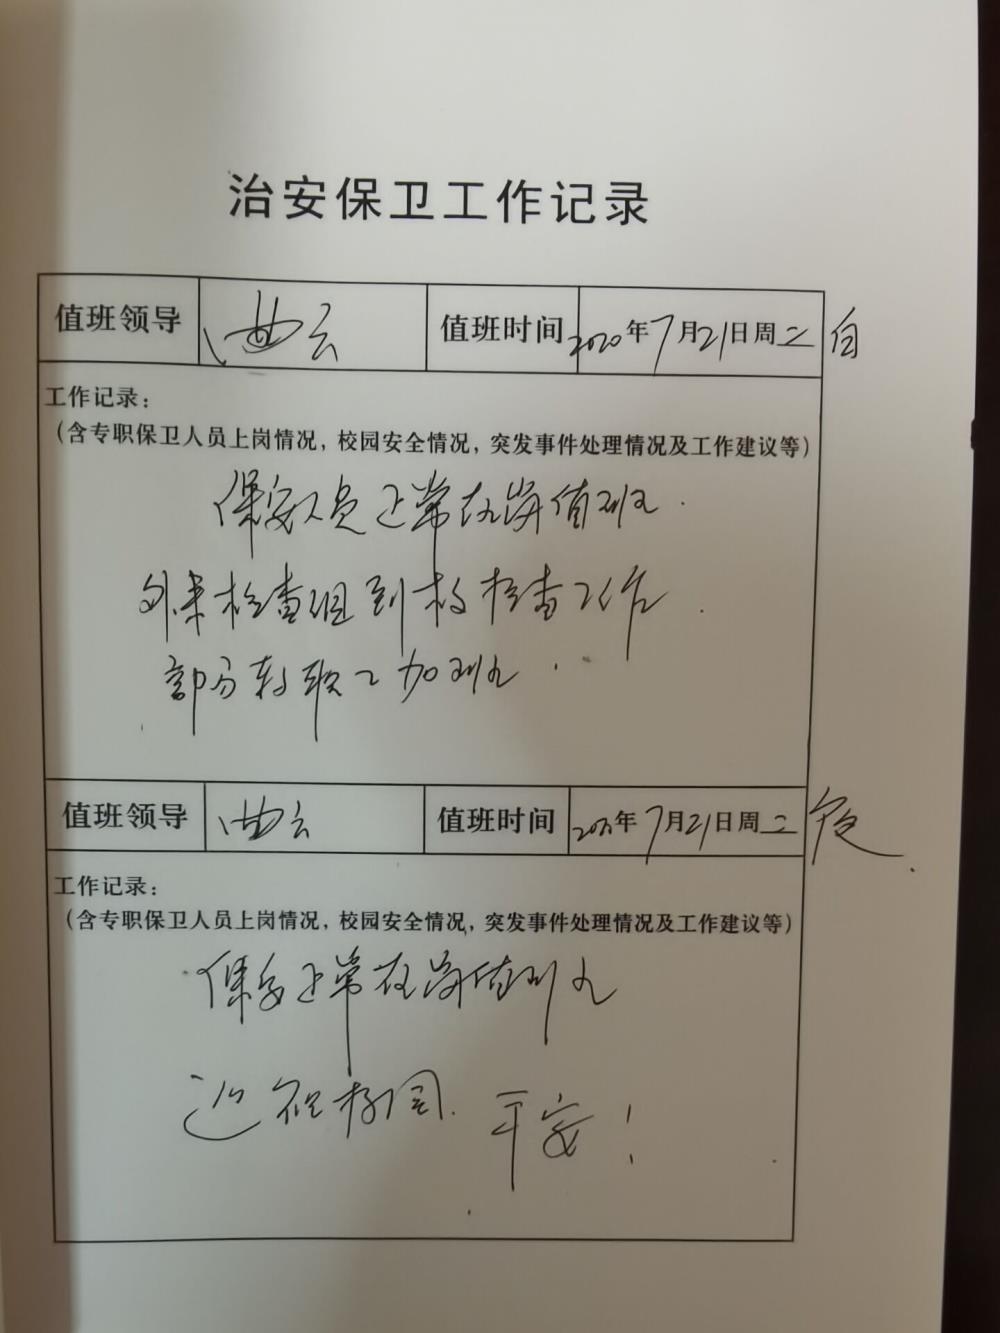 治安保卫工作记录
值班领导 曲云 值班时间 2020年7月21日周二 白
工作记录：
（含专职保卫人员上岗情况，校园安全情况，突发事件处理情况及工作建议等）
保安人员正常在岗值班．
外来检查组到校检查工作．
部分教职工加班．
值班领导 曲云 值班时间 2020年7月21日周二 夜
工作记录：
（含专职保卫人员上岗情况，校园安全情况，突发事件处理情况及工作建议等）
保安正常在岗值班
巡视校园．平安！